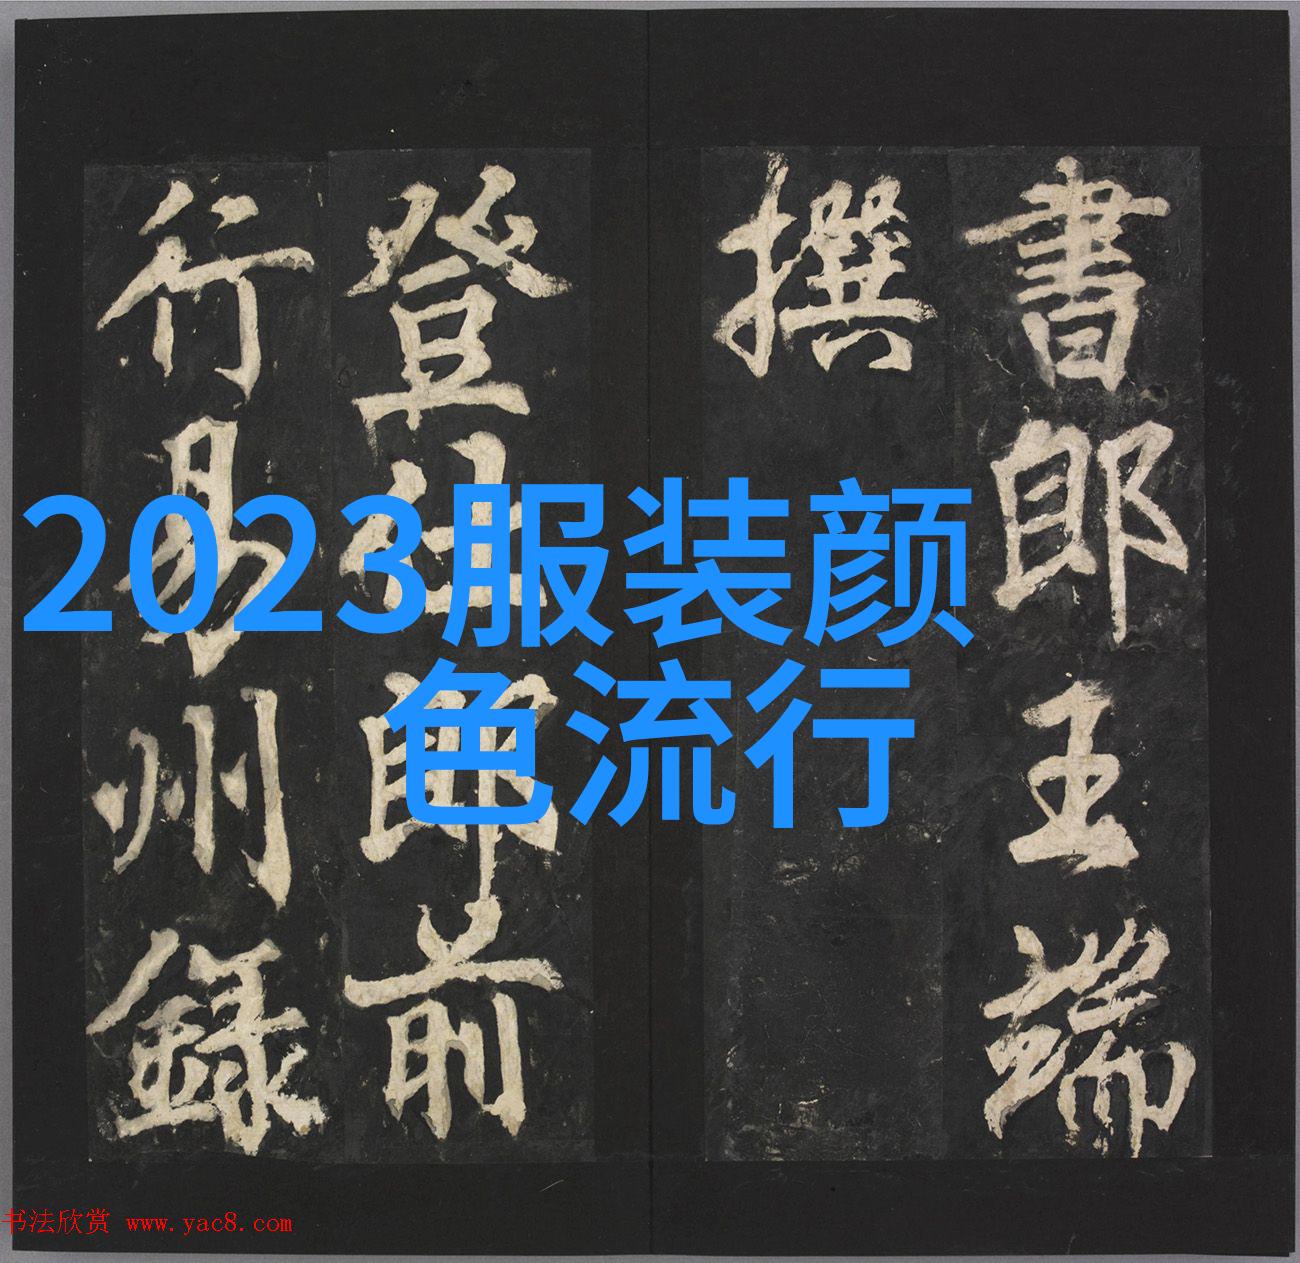 書郎王端
撰
登仕郎前
行易州録
2023服装颜
色流行
书法欣赏 www.yac8.com